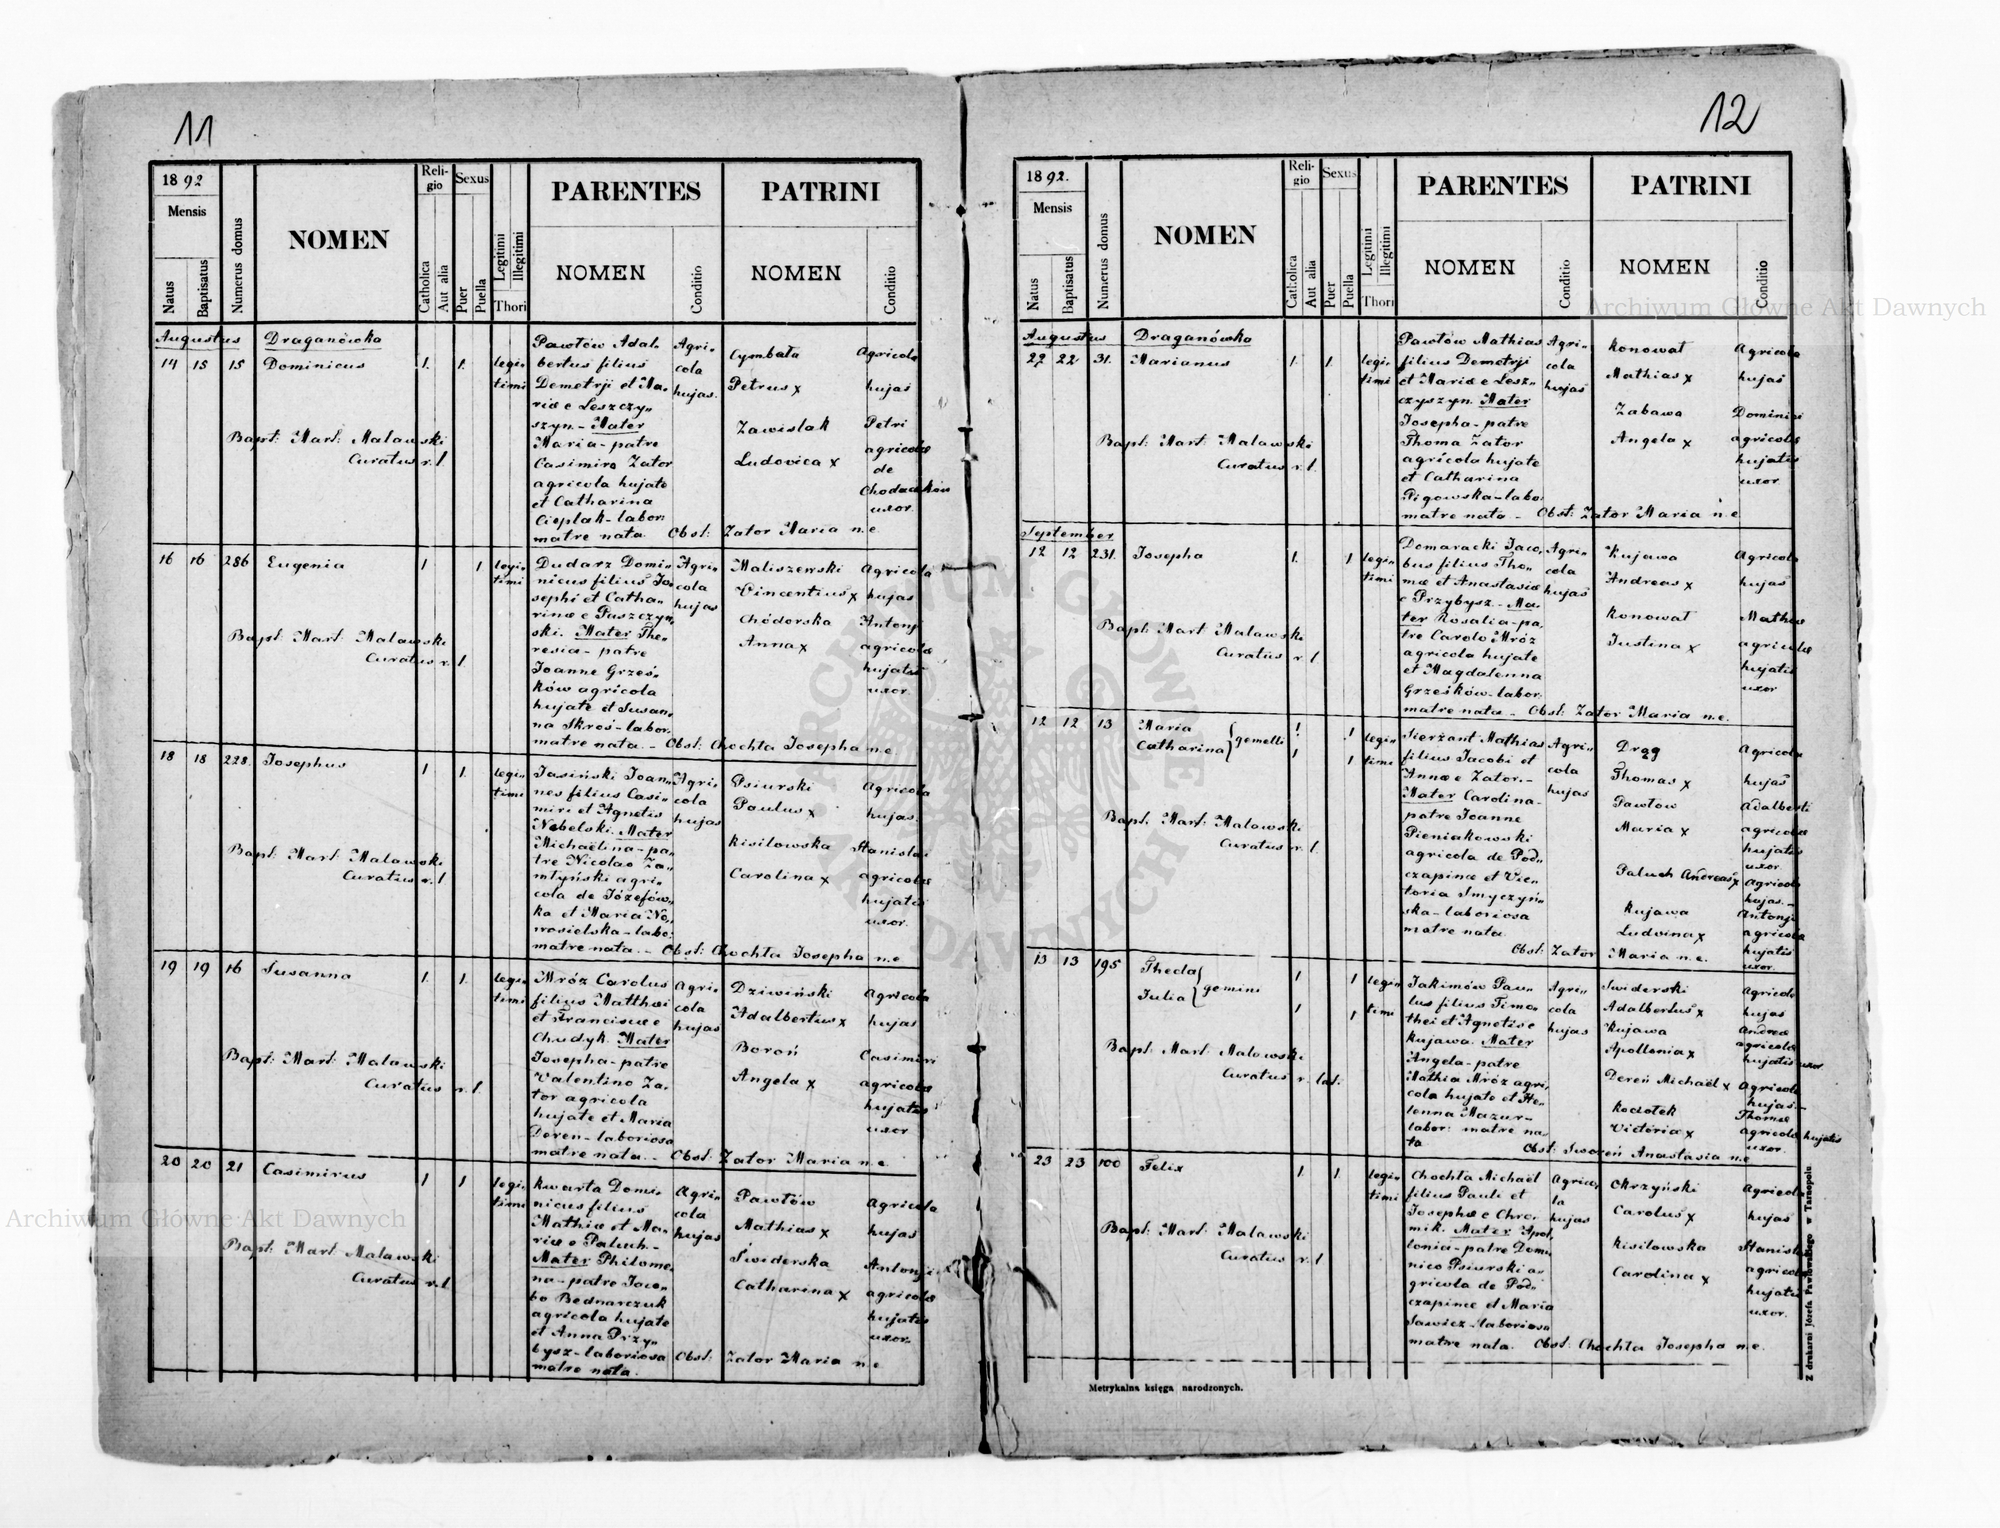 11
1892
Mensis
Natus
Baptisatus
Numerus domus
NOMEN
Religio
Catholica
Aut alia
Sexus
Puer
Puella
Legitimi
Illegitimi
Thori
PARENTES
NOMEN
Conditio
PATRINI
NOMEN
Conditio
Augustus Draganówka
14 15 15 Dominicus 1. 1. legi-
timi
Bapt: Mart: Malawski
Curatus r. l.
Pawłów Adal-
bertus filius
Demetrji et Ma-
riæ e Leszczy-
szyn.- Mater
Maria - patre
Casimiro Zator
agricola hujate
et Catharina
Cieplak - labor:
matre nata. Obst: Zator Maria n.e.
Agri-
cola
hujas.
Cymbała
Petrus x
Zawislak
Ludovica x
Agricola
hujas
Petri
agricolæ
de
Chodaczków
uxor.
16 16 286 Eugenia 1 1 legi-
timi
Bapt: Mart: Malawski
Curatus r. l.
Dudarz Domi-
nicus filius Jo-
sephi et Catha-
rinæ e Paszczyń-
ski. Mater The-
resia - patre
Joanne Grześ-
ków agricola
hujate et Susan-
na Skroś - labor.
matre nata. - Obst: Chochta Josepha n.e.
Agri-
cola
hujas
Maliszewski
Vincentius x
Chódorska
Anna x
Agricola
hujas
Antonji
agricolæ
hujatis
uxor.
18 18 228. Josephus 1 1. legi-
timi
Bapt: Mart: Malawski
Curatus r. l
Jasiński Joan-
nes filius Casi-
miri et Agnetis
Nebelski. Mater
Michaëlina - pa-
tre Nicolao Za-
młyński agri-
cola de Józefów-
ka et Maria No-
wosielska - labo:
matre nata. - Obst: Chochta Josepha n.e
Agri-
cola
hujas
Psiurski
Paulus x
Kisilowska
Carolina x
Agricola
hujas.
Stanislai
agricolæ
hujatis
uxor.
19 19 16 Susanna 1. 1. legi-
timi
Bapt: Mart: Malawski
Curatus r. l.
Mróz Carolus
filius Matthæi
et Franciscæ e
Chudyk. Mater
Josepha - patre
Valentino Za-
tor agricola
hujate et Maria
Deren - laboriosa
matre nata. - Obst: Zator Maria n.e.
Agri-
cola
hujas
Dziwiński
Adalbertus x
Boroń
Angela x
Agricola
hujas
Casimiri
agricolæ
hujatis
uxor
20 20 21 Casimirus 1 1 legi-
timi
Bapt: Mart: Malawski
Curatus r. l
Kwarta Domi-
nicus filius
Mathiæ et Ma-
riæ e Paluch.-
Mater Philome-
na - patre Jaco-
bo Bednarczuk
agricola hujate
et Anna Przy-
bysz - laboriosa
matre nata.
Obst: Zator Maria n.e.
Agri-
cola
hujas
Pawłów
Mathias x
Świderska
Catharina x
Agricola
hujas
Antonji
agricolæ
hujatis
uxor.
12
1892.
Mensis
Natus
Baptisatus
Numerus domus
NOMEN
Religio
Catholica
Aut alia
Sexus
Puer
Puella
Legitimi
Illegitimi
Thori
PARENTES
NOMEN
Conditio
PATRINI
NOMEN
Conditio
Augustus Draganówka
22 22 31. Marianus 1. 1. legi-
timi
Bapt: Mart Malawski
Curatus r. l.
Pawłów Mathias
filius Demetrji
et Mariæ e Lesz-
czyszyn. Mater
Josepha - patre
Thoma Zator
agricola hujate
et Catharina
Pigowska - labo.
matre nata - Obst: Zator Maria n.e
Agri-
cola
hujas
Konował
Mathias x
Zabawa
Angela x
Agricola
hujas
Dominici
agricolæ
hujatis
uxor
September
12 12 231. Josepha 1. 1 legi-
timi
Bapt: Mart Malawski
Curatus r. l.
Domaracki Jaco-
bus filius Tho-
mæ et Anastasiæ
e Przybysz. - Ma-
ter Rosalia - pa-
tre Carolo Mróz
agricola hujate
et Magdalenna
Grześków - labor.
matre nata - Obst: Zator Maria n.e.
Agri-
cola
hujas
Kujawa
Andreas x
Konował
Justina x
Agricola
hujas
Mathiæ
agricolæ
hujatis
uxor
12 12 13 Maria gemelli 1 1 legi-
Catharina 1 1 timi
Bapt: Mart: Malawski
Curatus r. l.
Sierżant Mathias
filius Jacobi et
Annæ e Zator.-
Mater Carolina -
patre Joanne
Pieniakowski
agricola de Pod-
czapinæ et Vic-
toria Smyczyń-
ska - laboriosa
matre nata
Obst: Zator Maria n.e.
Agri-
cola
hujas
Drąg
Thomas x
Pawłów
Maria x
Paluch Andreas x
Kujawa
Ludvina x
Agricola
hujas
Adalberti
agricolæ
hujatis
uxor
Agricola
hujas.-
Antonji
agricolæ
hujatis
uxor.
13 13 195 Thecla gemini 1 1 legi-
Julia 1 1 timi
Bapt: Mart: Malawski
Curatus r. lat.
Jakimów Pau-
lus filius Timo-
thei et Agnetis e
Kujawa. Mater
Angela - patre
Mathia Mróz agri-
cola hujate et He-
lenna Mazur -
labor: matre na-
ta Obst: Sworeń Anastasia n.e
Agri-
cola
hujas
Swiderski
Adalbertus x
Kujawa
Apollonia x
Dereń Michaël x
Kociołek
Victoria x
Agricola
hujas
Andreæ
agricolæ
hujatis uxor
Agricola
hujas.-
Thomæ
agricolæ hujatis
uxor.
23 23 100 Felix 1. 1. legi-
timi
Bapt: Mart: Malawski
Curatus r. l
Chochta Michaël
filius Pauli et
Josephæ e Chro-
mik. Mater Apol-
lonia - patre Domi-
nico Psiurski a-
gricola de Pod-
czapinæ et Maria
Sawicz - laboriosa
matre nata. Obst: Chochta Josepha n.e.
Agrico-
la
hujas
Okrzyński
Carolus x
Kisilowska
Carolina x
Agricola
hujas
Stanislai
agricolæ
hujatis
uxor.
Metrykalna księga narodzonych.
Z drukarni Józefa Pawłowskiego w Tarnopolu.
Archiwum Główne Akt Dawnych
Archiwum Główne Akt Dawnych
ARCHIWUM GŁÓWNE AKT DAWNYCH